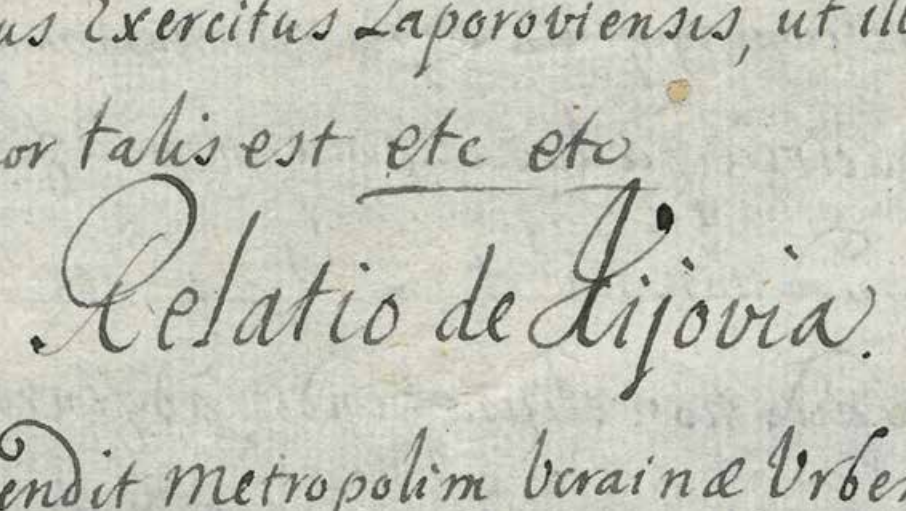 us Exercitus Zaporoviensis, ut ill
or talis est etc etc
Relatio de Kijovia.
endit Metropolim Ucrainæ Urbe